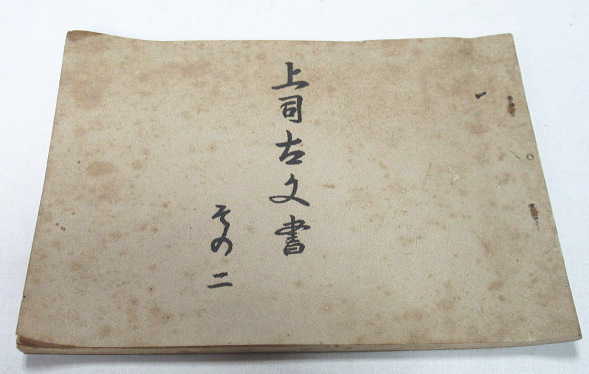 上司古文書
その二